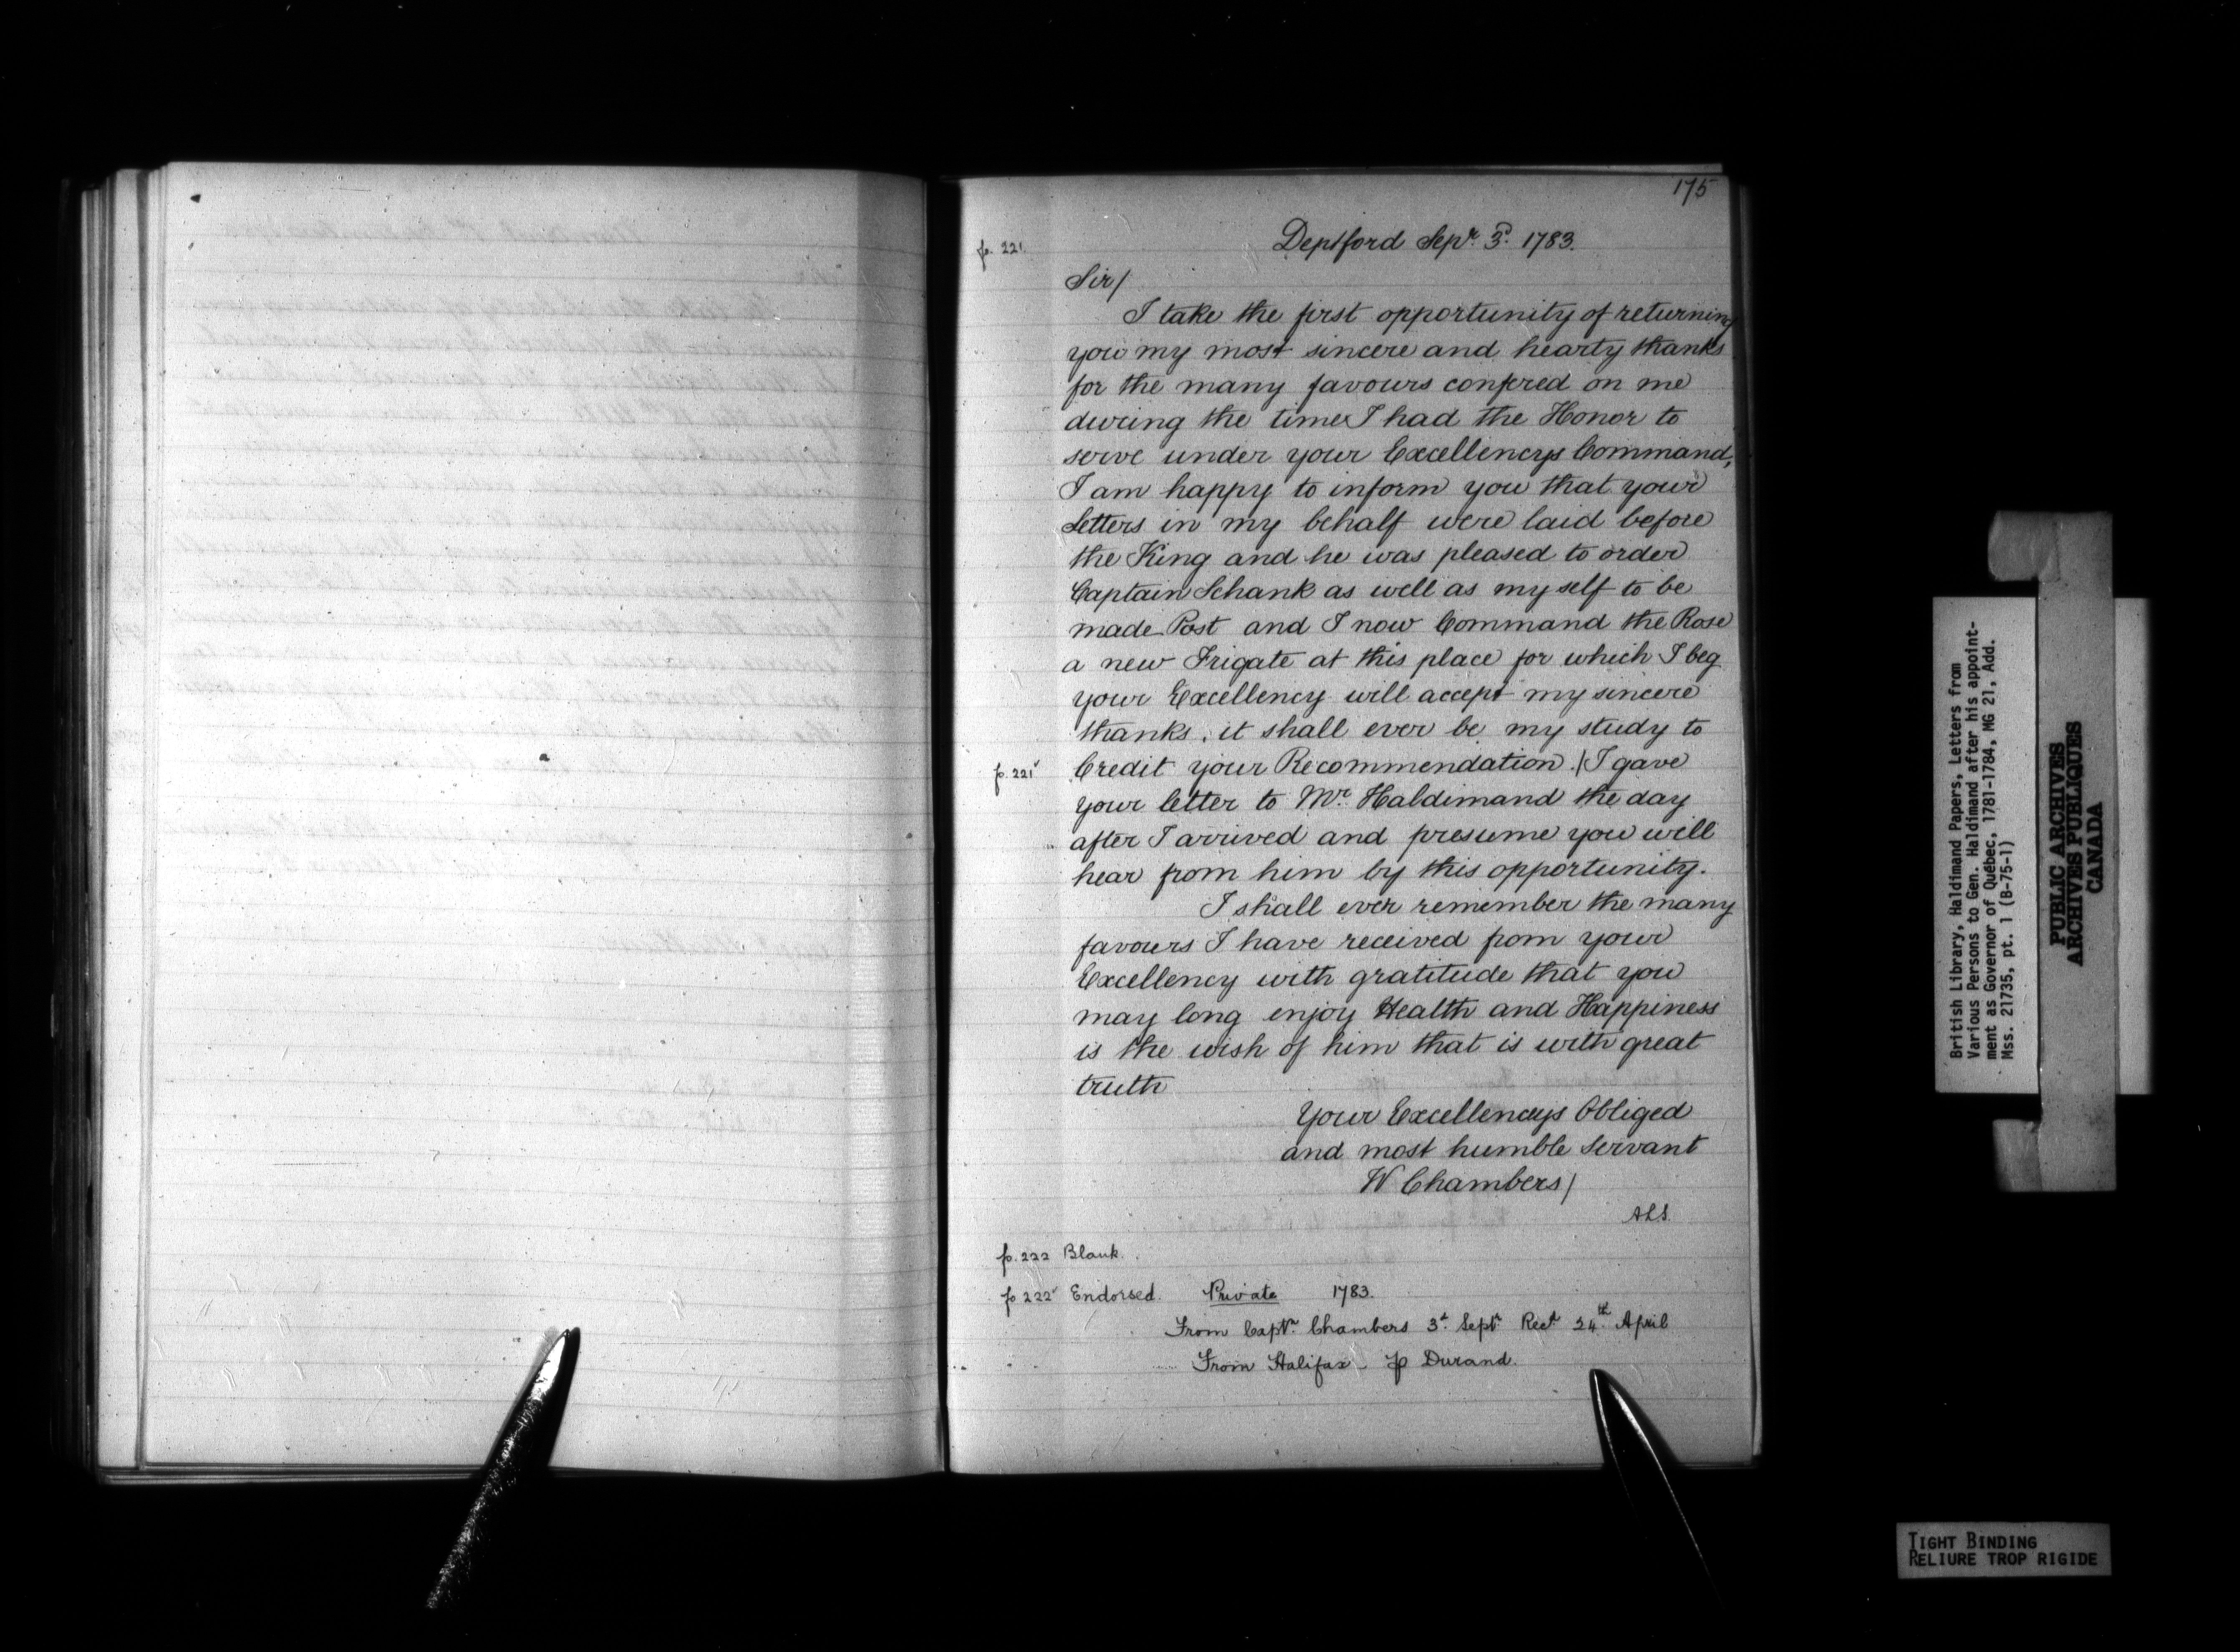 175
p. 221.
Deptford Sepr. 3d. 1783.
Sir/
I take the first opportunity of returning
you my most sincere and hearty thanks
for the many favours confered on me
during the time I had the Honor to
serve under your Excellencys Command,
I am happy to inform you that your
Letters in my behalf were laid before
the King and he was pleased to order
Captain Schank as well as my self to be
made Post and I now Command the Rose
a new Frigate at this place for which I beg
your Excellency will accept my sincere
thanks, it shall ever be my study to
p. 221v Credit your Recommendation. / I gave
your letter to Mr. Haldimand the day
after I arrived and presume you will
hear from him by this opportunity.
I shall ever remember the many
favours I have received from your
Excellency with gratitude that you
may long enjoy Health and Happiness
is the wish of him that is with great
truth
Your Excellencys Obliged
and most humble servant
W Chambers/
ALS.
p. 222 Blank.
p. 222v Endorsed. Private 1783.
From Captn. Chambers 3d. Septr. Recd. 24th. April
From Halifax - p Durand.
British Library, Haldimand Papers, Letters from
Various Persons to Gen. Haldimand after his appoint-
ment as Governor of Québec. 1781-1784, MG 21, Add.
Mss. 21735, pt. 1 (B-75-1)
PUBLIC ARCHIVES
ARCHIVES PUBLIQUES
CANADA
TIGHT BINDING
RELIURE TROP RIGIDE